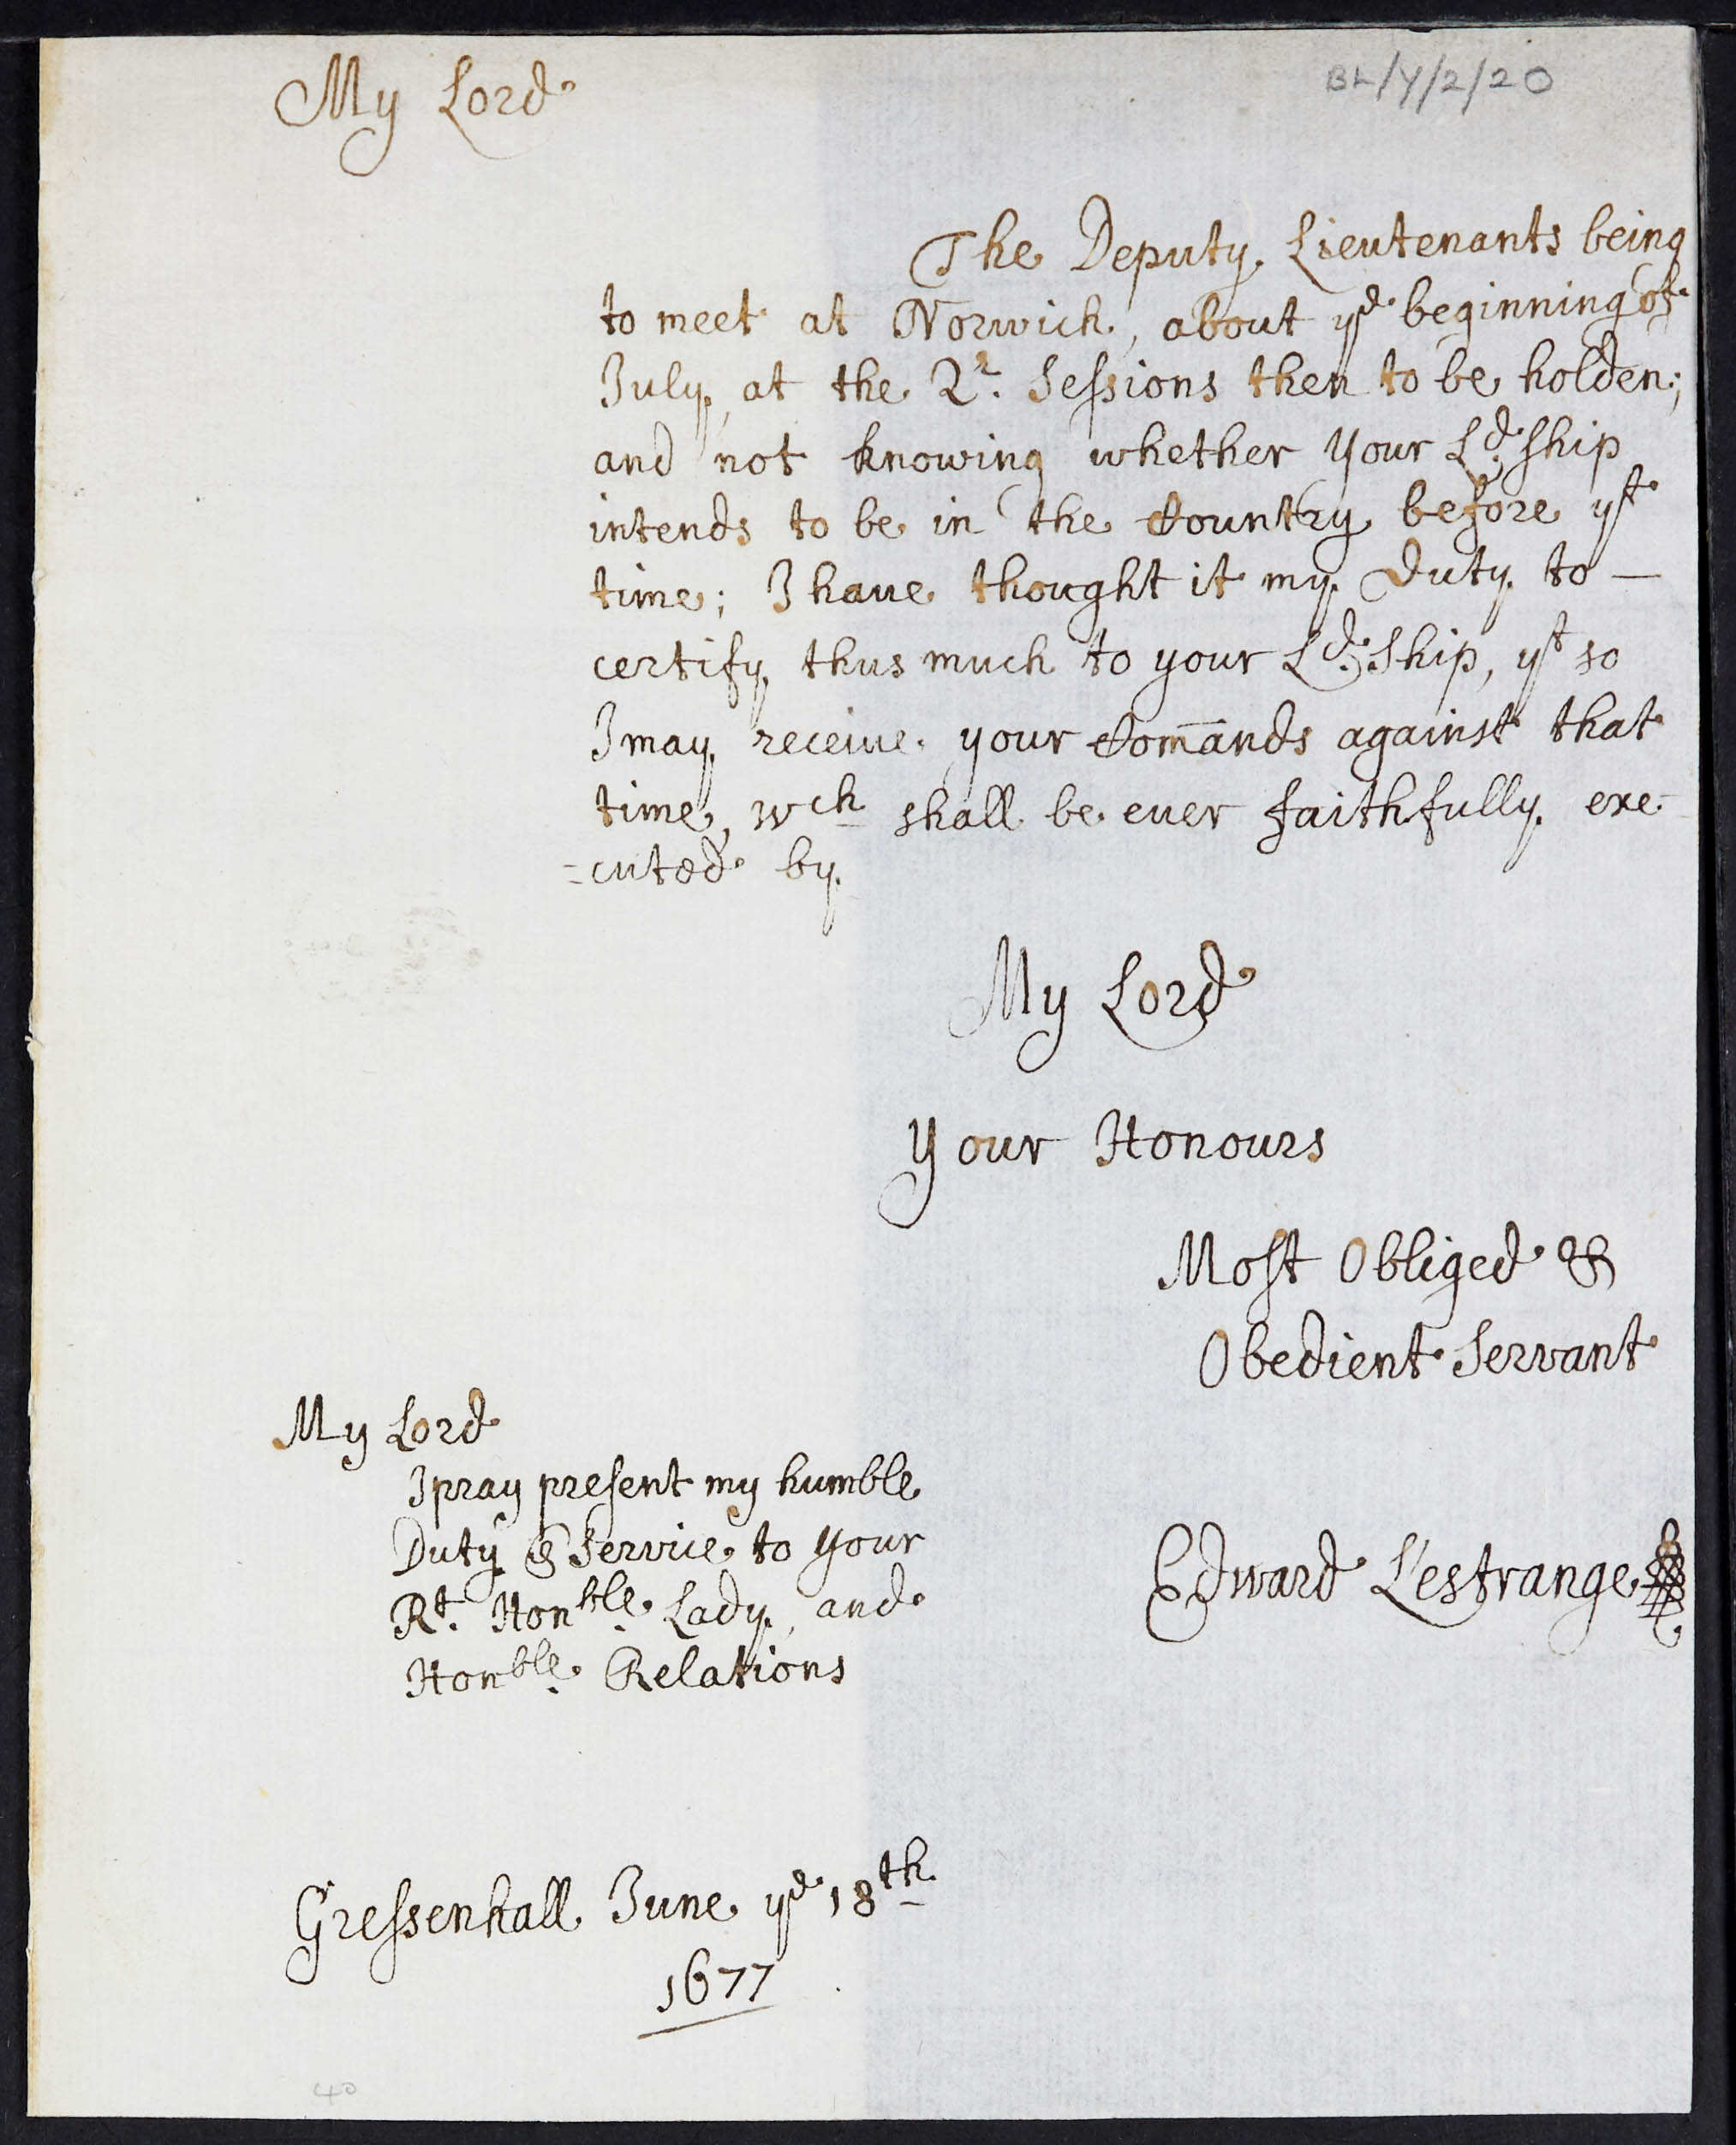 BL/Y/2/20
My Lord
The Deputy Lieutenants being
to meet at Norwich, about ye beginning of
July, at the Qr. Sessions then to be holden;
and not knowing whether your Ld:ship
intends to be in the Country before yt
time; I haue thought it my Duty to —
certify thus much to your Ld:Ship, yt so
I may receiue your Com̄ands against that
time, wch shall be euer faithfully exe-
=cuted by
My Lord
Your Honours
Most Obliged &
Obedient Servant
Edward L'estrange
My Lord
I pray present my humble
Duty & Service to your
Rt. Honble. Lady, and
Honble. Relations
Gressenhall June ye 18th
1677
40